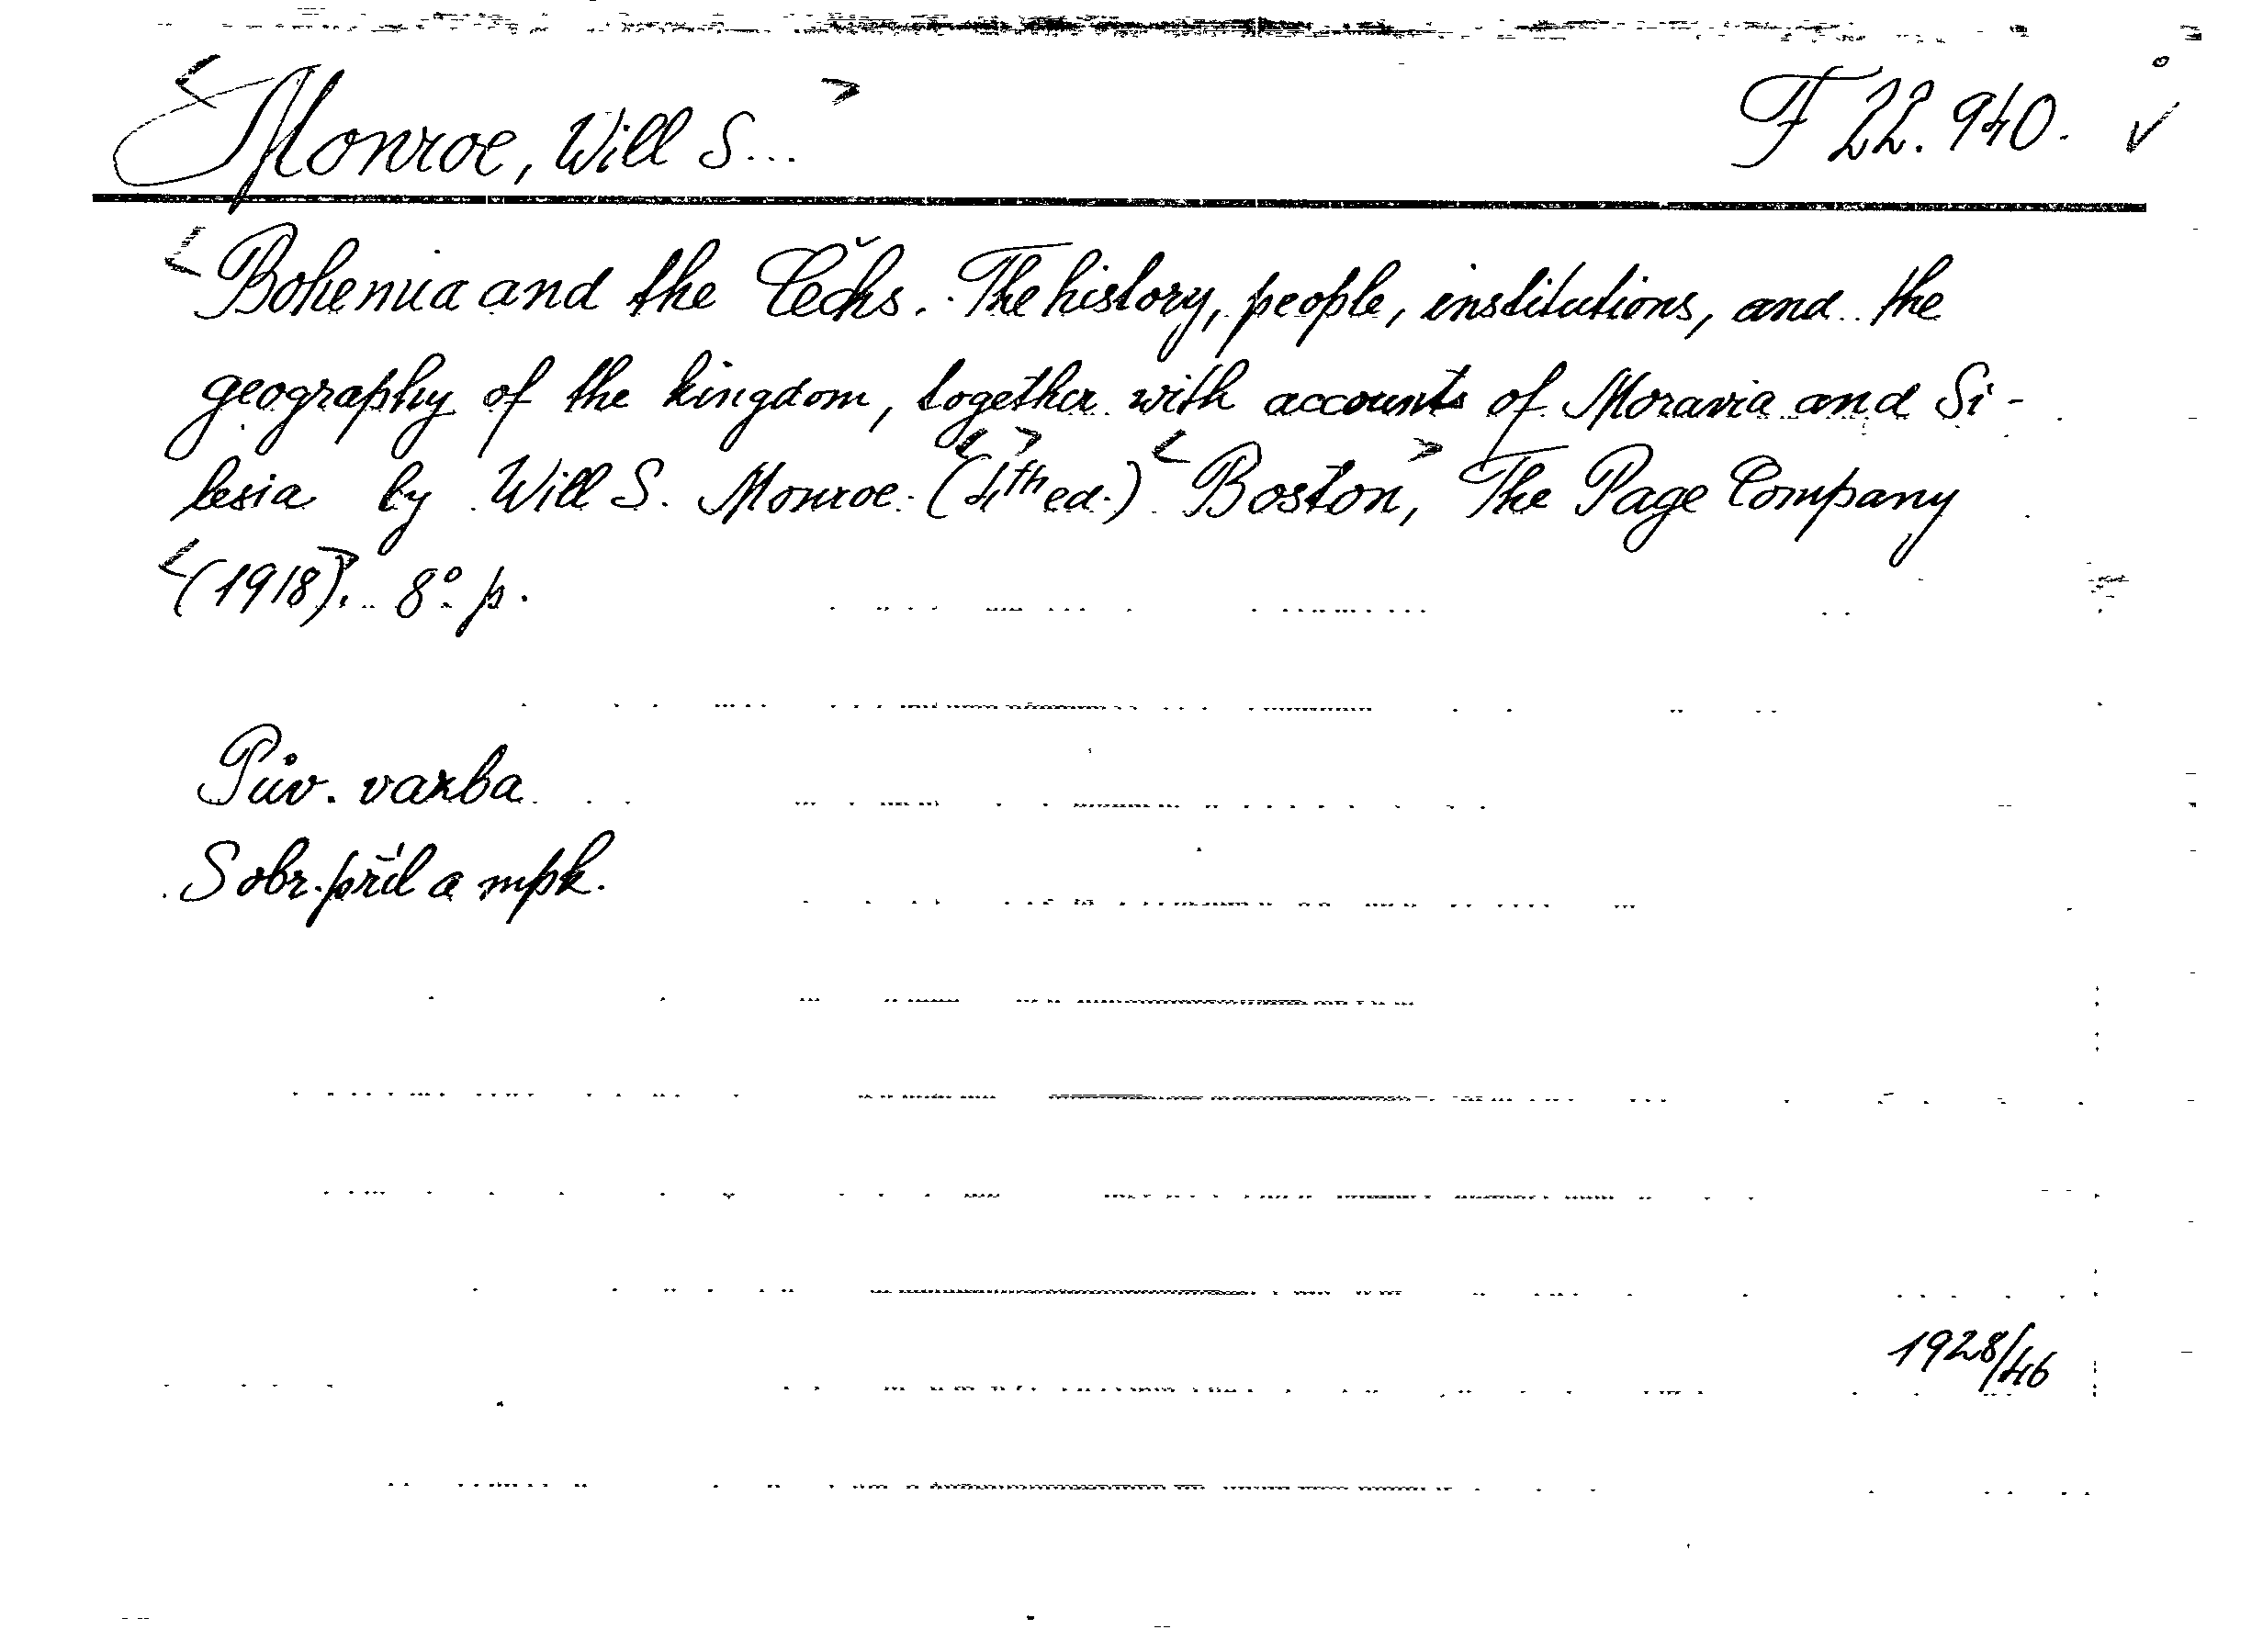 <Monroe, Will S...> F 22.940. v
<Bohemia and the Čechs. The history, people, institutions, and the
geography of the kingdom, together with accounts of Moravia and Si-
lesia by Will S. Monroe. (<4th> ed.) <Boston>, The Page Company
<(1918)>. 8° p.
Pův. vazba
S obr. příl a mpk.
1928/46